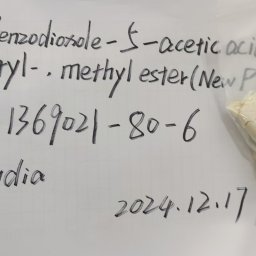 enzodioxole-5-acetic aci
ryl-, methyl ester (New P
1369021-80-6
dia
2024.12.17